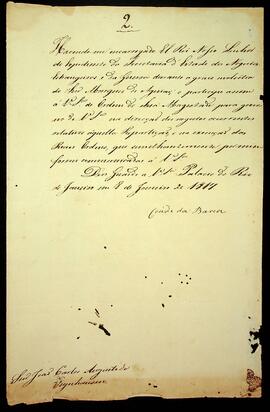 2.
Havendo me encarregado El Rei Nosso Senhor
do Expediente da Secretaria d'Estado dos Negocios
Estrangeiros e da Guerra durante a grave molestia
do Snr Marquez de Aguiar, o participo assim
á V.S.ª de Ordem do Mesmo para gover-
no de V.S.ª na direcção dos negocios occorrentes
relativos áquella Repartição, e na execução das
Reaes Ordens, que
forem communicadas á V.S.ª
Deos Guarde a V.S.ª Palacio do Rio
de Janeiro em 8 de Janeiro de 1817
Conde da Barca
Snr João Carlos Augusto de
Oeynhausen